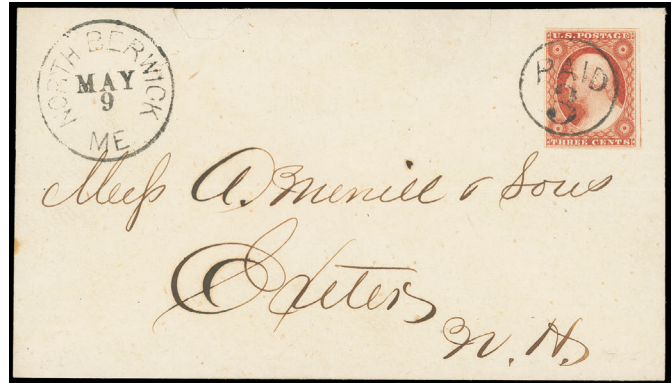 NORTH BERWICK
MAY
9
ME
U.S. POSTAGE
PAID
3
THREE CENTS
Mess A. Merrill & Sons
Exeter
N. H.